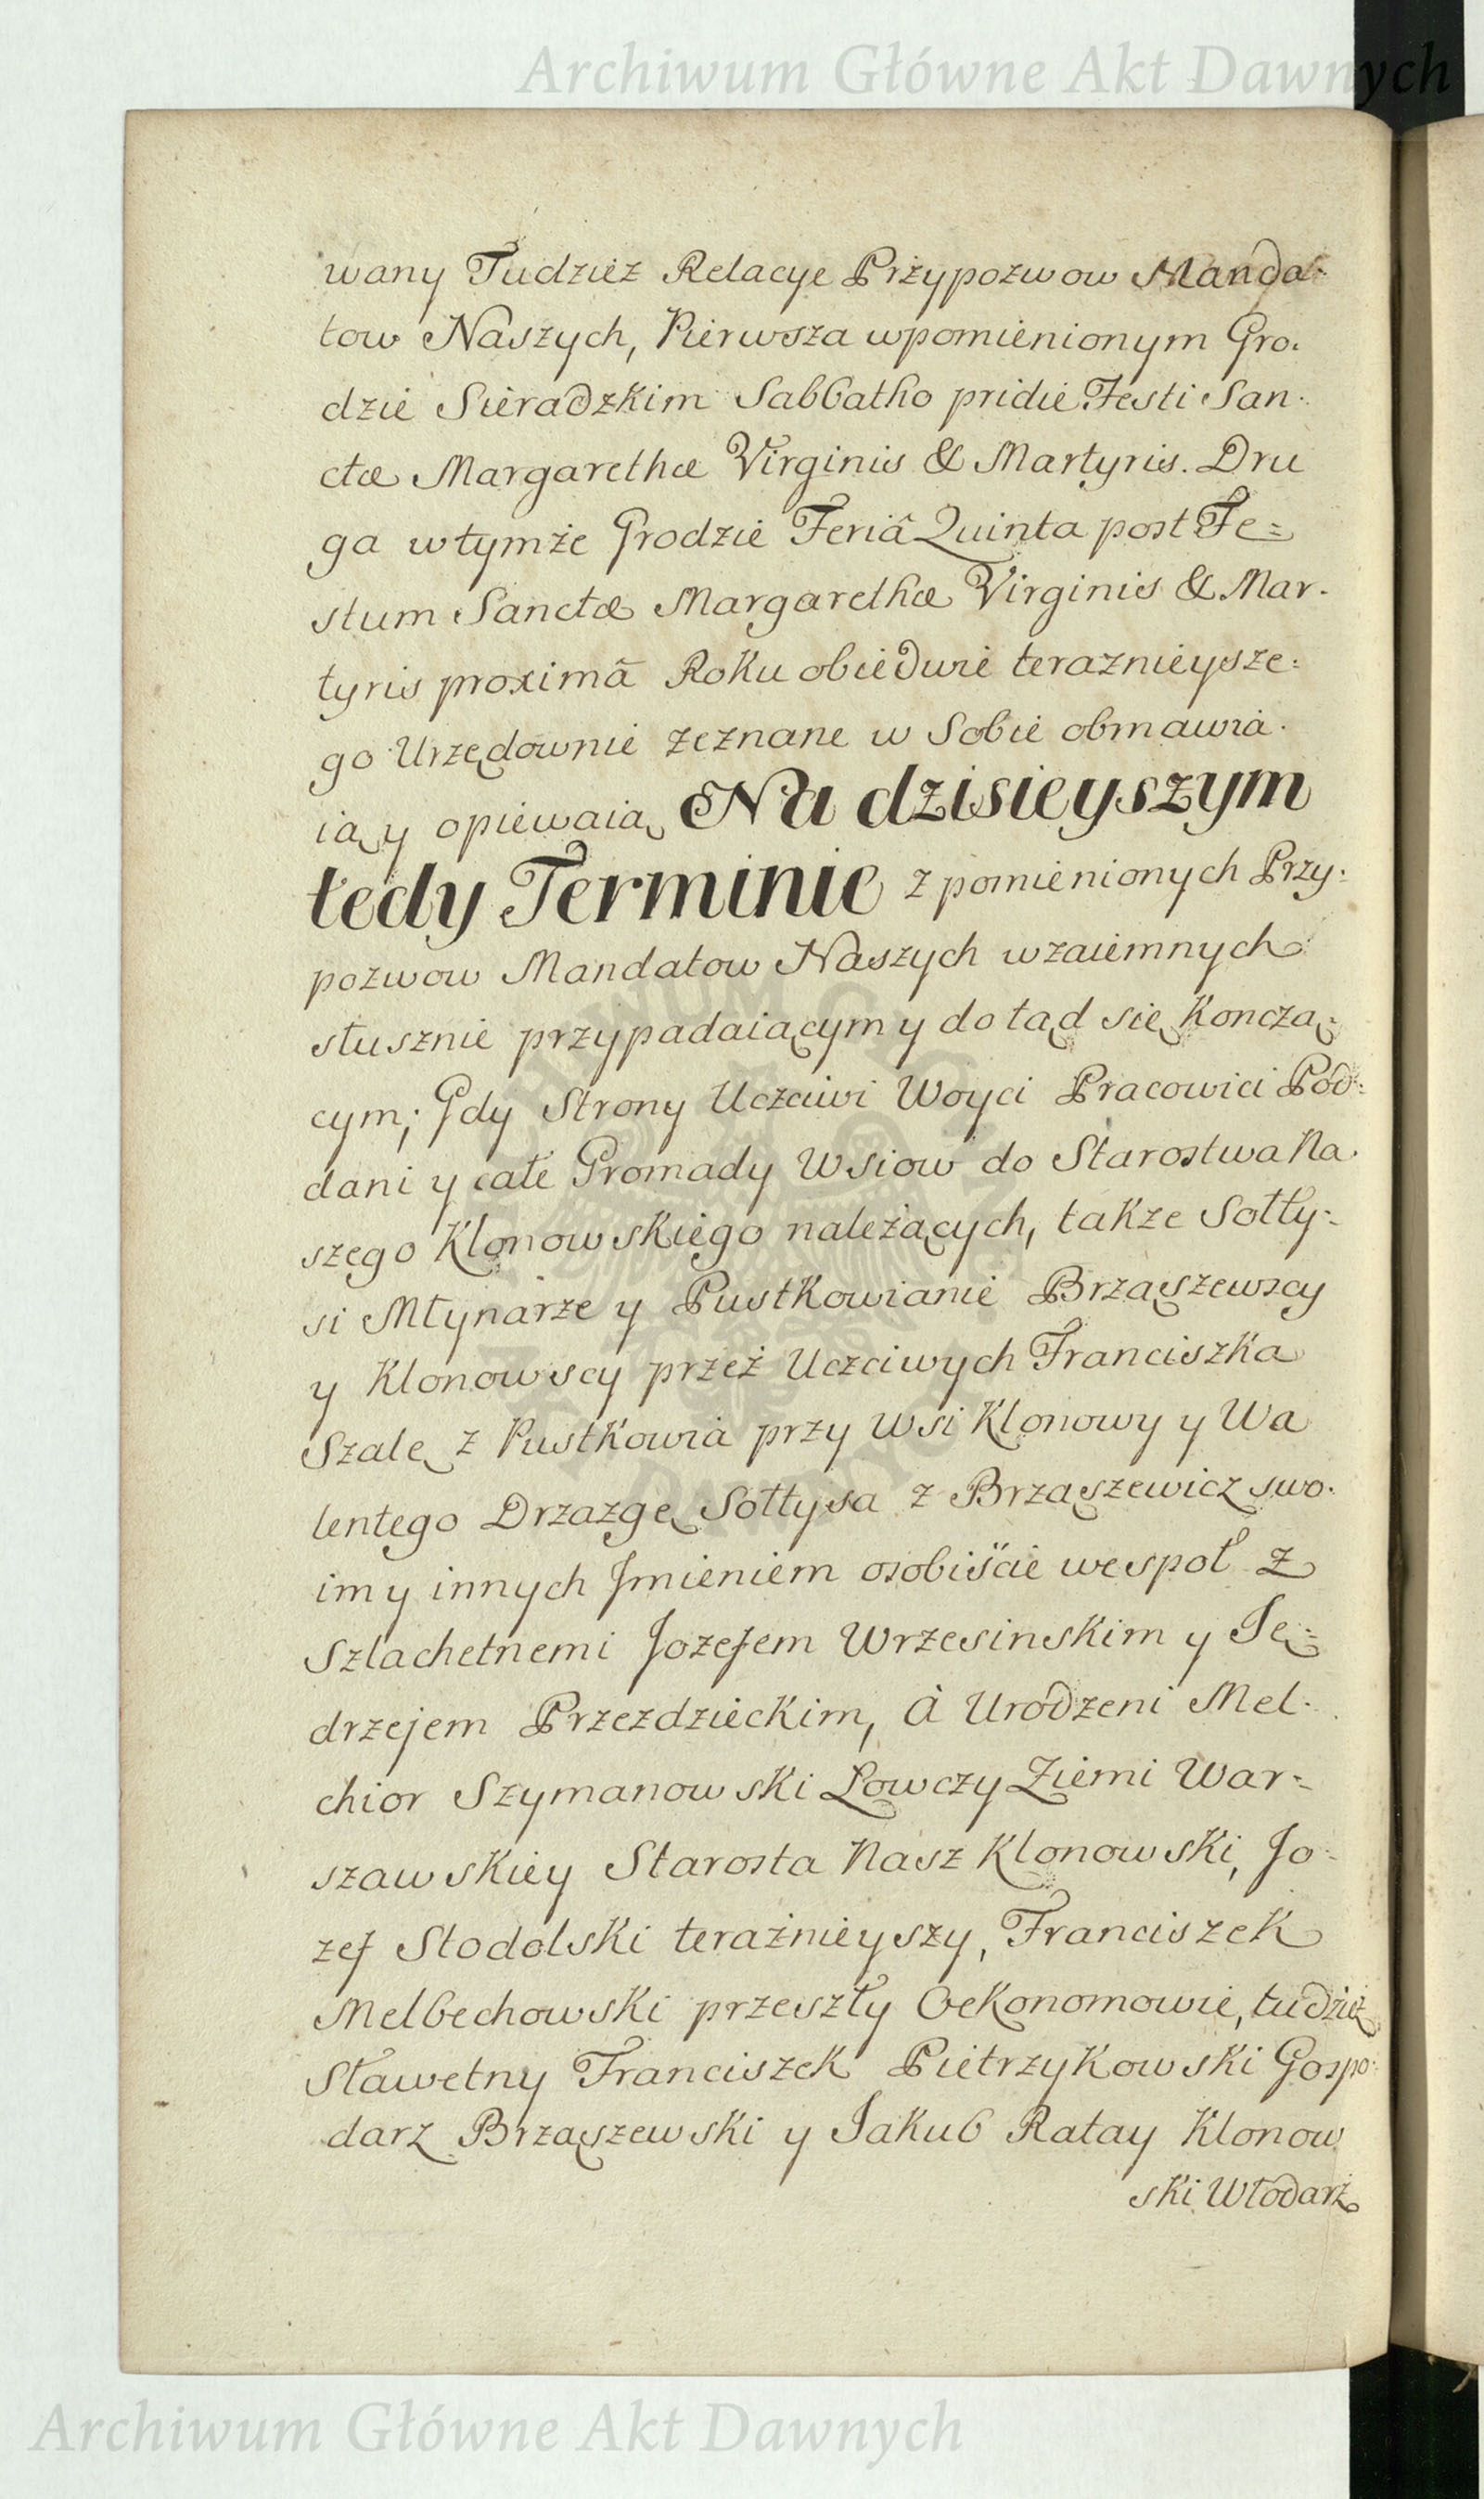 Archiwum Główne Akt Dawnych
wany Tudzież Relacye Przypozwow Manda-
tow Naszych, Pierwsza wpomienionym Gro-
dzie Sieradzkim Sabbatho pridie Festi San-
ctæ Margarethæ Virginis & Martyris. Dru
ga wtymże Grodzie Feriâ Quinta post Fe=
stum Sanctæ Margarethæ Virginis & Mar-
tyris proximâ Roku obiedwie teraznieysze-
go Urzędownie zeznane w Sobie obmawia-
ią y opiewaią Na dzisieyszym
tedy Terminie z pomienionych Przy-
pozwow Mandatow Naszych wzaiemnych
słusznie przypadaiącym y dotąd się Kończą-
cym; Gdy Strony Uczciwi Woyci Pracowici Pod-
dani y całe Gromady Wsiow do Starostwa Na-
szego Klonowskiego należących, także Sołty-
si Młynarze y Pustkowianie Brząszewscy
y Klonowscy przez Uczciwych Franciszka
Szalę z Pustkowia przy Wsi Klonowy y Wa
lentego Drzazgę Sołtysa z Brząszewicz swo-
im y innych Jmieniem osobiście wespoł z
Szlachetnemi Jozefem Wrzesinskim y Ję=
drzejem Przezdzieckim, à Urodzeni Mel-
chior Szymanowski Łowczy Ziemi War-
szawskiey Starosta Nasz Klonowski, Jo-
zef Stodolski teraźnieyszy, Franciszek
Melbechowski przeszły Oekonomowie, tudzież
Sławetny Franciszek Pietrzykowski Gospo-
darz Brząszewski y Jakub Ratay Klonow
ski Włodarz
Archiwum Główne Akt Dawnych